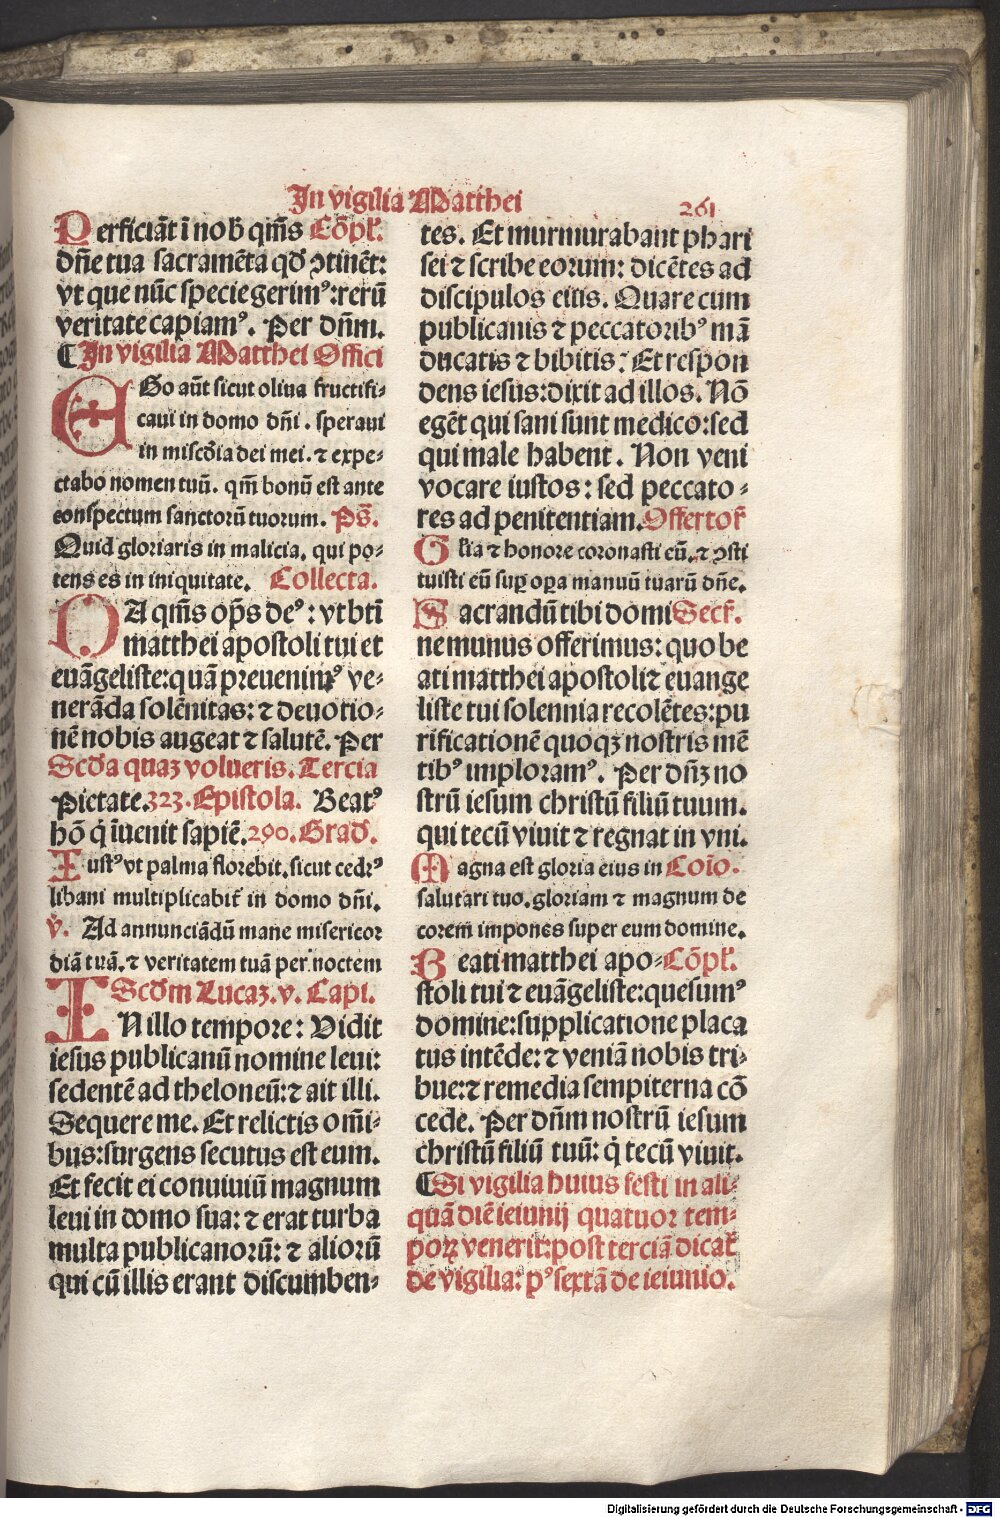 In vigilia Matthei
261
Perficiāt ī nob̄ qm̄s Cōpl̄.
dn̄e tua sacramēta qd̄ ꝯtinēt:
vt que nūc specie gerimꝰ: rerū
veritate capiamꝰ. Per dn̄m.
¶ In vigilia Matthei Offici
EGo aūt sicut oliua fructifi⸗
caui in domo dn̄i. speraui
in misc̄dia dei mei. ⁊ expe⸗
ctabo nomen tuū. qm̄ bonū est ante
conspectum sanctorū tuorum. Ps̄.
Quid gloriaris in malicia. qui po⸗
tens es in iniquitate. Collecta.
DA qm̄s op̄s deꝰ: vt btī
matthei apostoli tui et
euāgeliste: quā preuenimꝰ ve⸗
nerāda solēnitas: ⁊ deuotio⸗
nē nobis augeat ⁊ salutē. Per
Scd̄a quaꝫ volueris. Tercia
Pietate. 323. Epistola. Beatꝰ
hō q̄ īuenit sapiē. 290. Grad̄.
Iustꝰ vt palma florebit. sicut cedrꝰ
libani multiplicabit̄ in domo dn̄i.
v̄. Ad annunciādū mane misericor
diā tuā. ⁊ veritatem tuā per noctem
Scd̄m Lucaꝫ. v. Capi.
IN illo tempore: Vidit
iesus publicanū nomine leui:
sedentē ad theloneū: ⁊ ait illi.
Sequere me. Et relictis om̄i⸗
bus: surgens secutus est eum.
Et fecit ei conuiuiū magnum
leui in domo sua: ⁊ erat turba
multa publicanorū: ⁊ aliorū
qui cū illis erant discumben⸗
tes. Et murmurabant phari
sei ⁊ scribe eorum: dicētes ad
discipulos eius. Quare cum
publicanis ⁊ peccatoribꝰ mā
ducatis ⁊ bibitis: Et respon
dens iesus: dixit ad illos. Nō
egēt qui sani sunt medico: sed
qui male habent. Non veni
vocare iustos: sed peccato⸗
res ad penitentiam. Offertor̄
Gl̄ia ⁊ honore coronasti eū. ⁊ ꝯsti
tuisti eū sup̄ op̄a manuū tuarū dn̄e.
Sacrandū tibi domi Secr̄.
ne munus offerimus: quo be
ati matthei apostoli ⁊ euange
liste tui solennia recolētes: pu
rificationē quoqꝫ nostris mē
tibꝰ imploramꝰ. Per dn̄ꝫ no
strū iesum christū filiū tuum.
qui tecū viuit ⁊ regnat in vni.
Magna est gloria eius in Cōio.
salutari tuo. gloriam ⁊ magnum de
corem impones super eum domine.
Beati matthei apo⸗ Cōpl̄.
stoli tui ⁊ euāgeliste: quesumꝰ
domine: supplicatione placa
tus intēde: ⁊ veniā nobis tri⸗
bue: ⁊ remedia sempiterna cō
cede. Per dn̄m nostrū iesum
christū filiū tuū: q̄ tecū viuit.
¶ Si vigilia huius festi in ali⸗
quā diē ieiunij quatuor tem⸗
poꝝ venerit: post terciā dicat̄
de vigilia: pꝰ sextā de ieiunio.
Digitalisierung gefördert durch die Deutsche Forschungsgemeinschaft - DFG